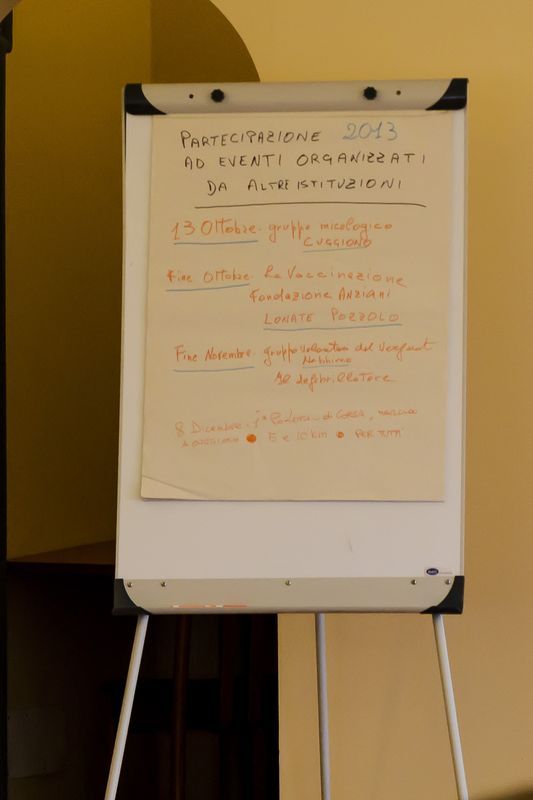 PARTECIPAZIONE 2013
AD EVENTI ORGANIZZATI
DA ALTRE ISTITUZIONI
13 Ottobre. gruppo micologico
CUGGIONO
Fine Ottobre. La Vaccinazione
Fondazione ANZIANI
LONATE POZZOLO
Fine Novembre. gruppo del
Il defibrillatore
8 Dicembre. 1ª di CORSA,
5 e 10 km PER TUTTI